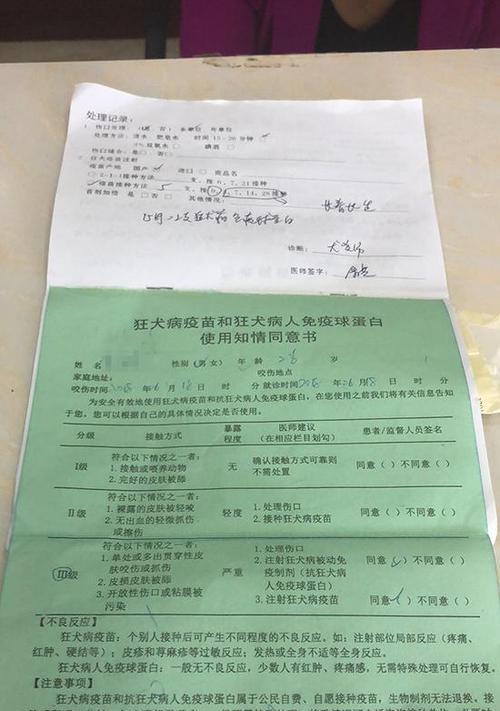 处理记录:
1. 伤口处理:(有 否) 本单位 外单位
处理方法:清水 肥皂水 时间15-20分钟
双氧水 碘酒 □
伤口缝合:是□ 否□
2. 狂犬疫苗注射
疫苗产地 国产 进口□ 商品名
□2-1-1接种方法 支,按0,7,21接种
疫苗接种方法 5 支,按0,3,7,14,28接种
首剂加倍 是□ 否□ 其他情况:
长春长生
诊断:
医师签字:
狂犬病疫苗和狂犬病人免疫球蛋白
使用知情同意书
姓 名 性别(男女) 年龄 26 岁
家庭地址: 咬伤地点
咬伤时间 年06月18日 时 分就诊时间 年06月18日 时 分
为安全有效地使用狂犬病疫苗和抗狂犬病人免疫球蛋白,在您使用之前我们将有关信息告知
于您。您可以根据自己的具体情况决定是否使用。
分级 接触方式 暴露程度 医师建议(在相应栏目划勾) 患者/监督人员签名
I级 符合以下情况之一者: 无 确认接触方式可靠则 同意( )不同意( )
1. 接触或喂养动物 不需处置
2. 完好的皮肤被舔
II级 符合以下情况之一者: 轻度 1. 处理伤口 同意( )不同意( )
1. 裸露的皮肤被轻咬 2. 接种狂犬病疫苗
2. 无出血的轻微抓伤
或擦伤
III级 符合以下情况之一者: 严重 1. 处理伤口
1. 单处或多出贯穿性皮 2. 注射狂犬病被动免 同意( )不同意( )
肤咬伤或抓伤 疫制剂(抗狂犬病
2. 皮损皮肤被舔 人免疫球蛋白)
3. 开放性伤口或粘膜被 3. 注射狂犬病疫苗 同意( )不同意( )
污染
【不良反应】
狂犬病疫苗:个别人接种后可产生不同程度的不良反应。如:注射部位局部反应(疼痛、
红肿、硬结等);皮疹和荨麻疹等过敏反应;发热或全身不适等全身反应。
狂犬病人免疫球蛋白:一般无不良反应,少数人有红肿、疼痛感,无需特殊处理可自行恢复。
【注意事项】
狂犬病疫苗和抗狂犬病人免疫球蛋白属于公民自费、自愿接种疫苗,生物制剂无法退换。